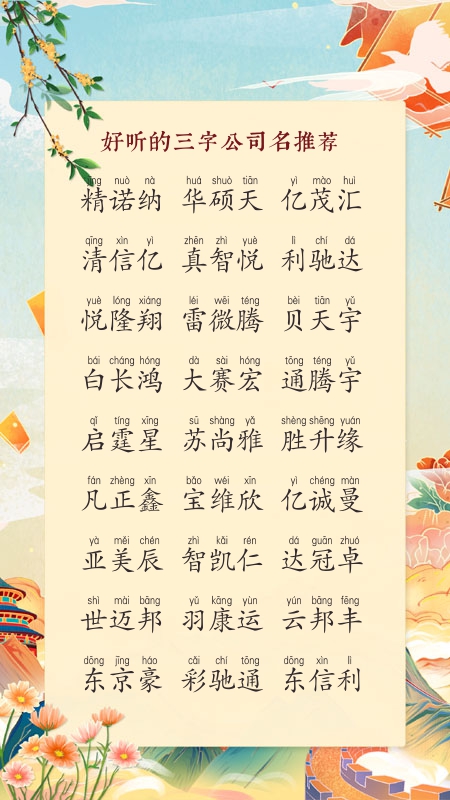 好听的三字公司名推荐
jīng nuò nà huá shuò tiān yì mào huì
精诺纳 华硕天 亿茂汇
qīng xìn yì zhēn zhì yuè lì chí dá
清信亿 真智悦 利驰达
yuè lóng xiáng léi wēi téng bèi tiān yǔ
悦隆翔 雷微腾 贝天宇
bái cháng hóng dà sài hóng tōng téng yǔ
白长鸿 大赛宏 通腾宇
qǐ tíng xīng sū shàng yǎ shèng shēng yuán
启霆星 苏尚雅 胜升缘
fán zhèng xīn bǎo wéi xīn yì chéng màn
凡正鑫 宝维欣 亿诚曼
yà měi chén zhì kǎi rén dá guān zhuó
亚美辰 智凯仁 达冠卓
shì mài bāng yǔ kāng yùn yún bāng fēng
世迈邦 羽康运 云邦丰
dōng jīng háo cǎi chí tōng dōng xìn lì
东京豪 彩驰通 东信利